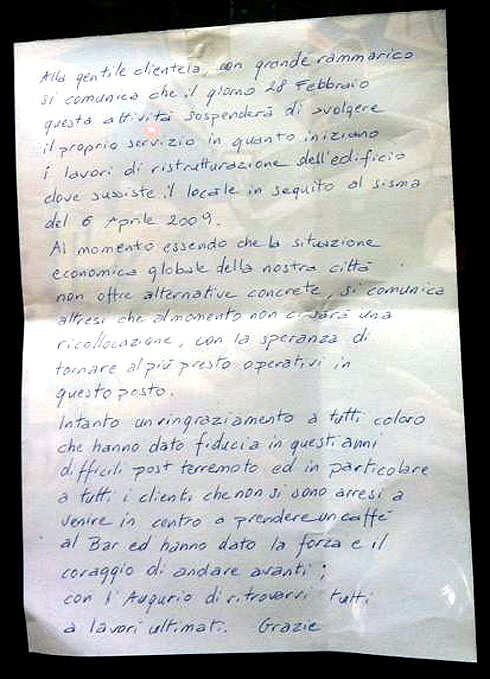 Alla gentile clientela, con grande rammarico
si comunica che il giorno 28 Febbraio
questa attività sospenderà di svolgere
il proprio servizio in quanto iniziano
i lavori di ristrutturazione dell'edificio
dove sussiste il locale in seguito al sisma
del 6 Aprile 2009.
Al momento essendo che la situazione
economica globale della nostra città
non offre alternative concrete, si comunica
altresì che al momento non ci sarà una
ricollocazione, con la speranza di
tornare al più presto operativi in
questo posto.
Intanto un ringraziamento a tutti coloro
che hanno dato fiducia in questi anni
difficili post terremoto ed in particolare
a tutti i clienti che non si sono arresi a
venire in centro a prendere un caffè
al Bar ed hanno dato la forza e il
coraggio di andare avanti;
con l'Augurio di ritrovarvi tutti
a lavori ultimati. Grazie